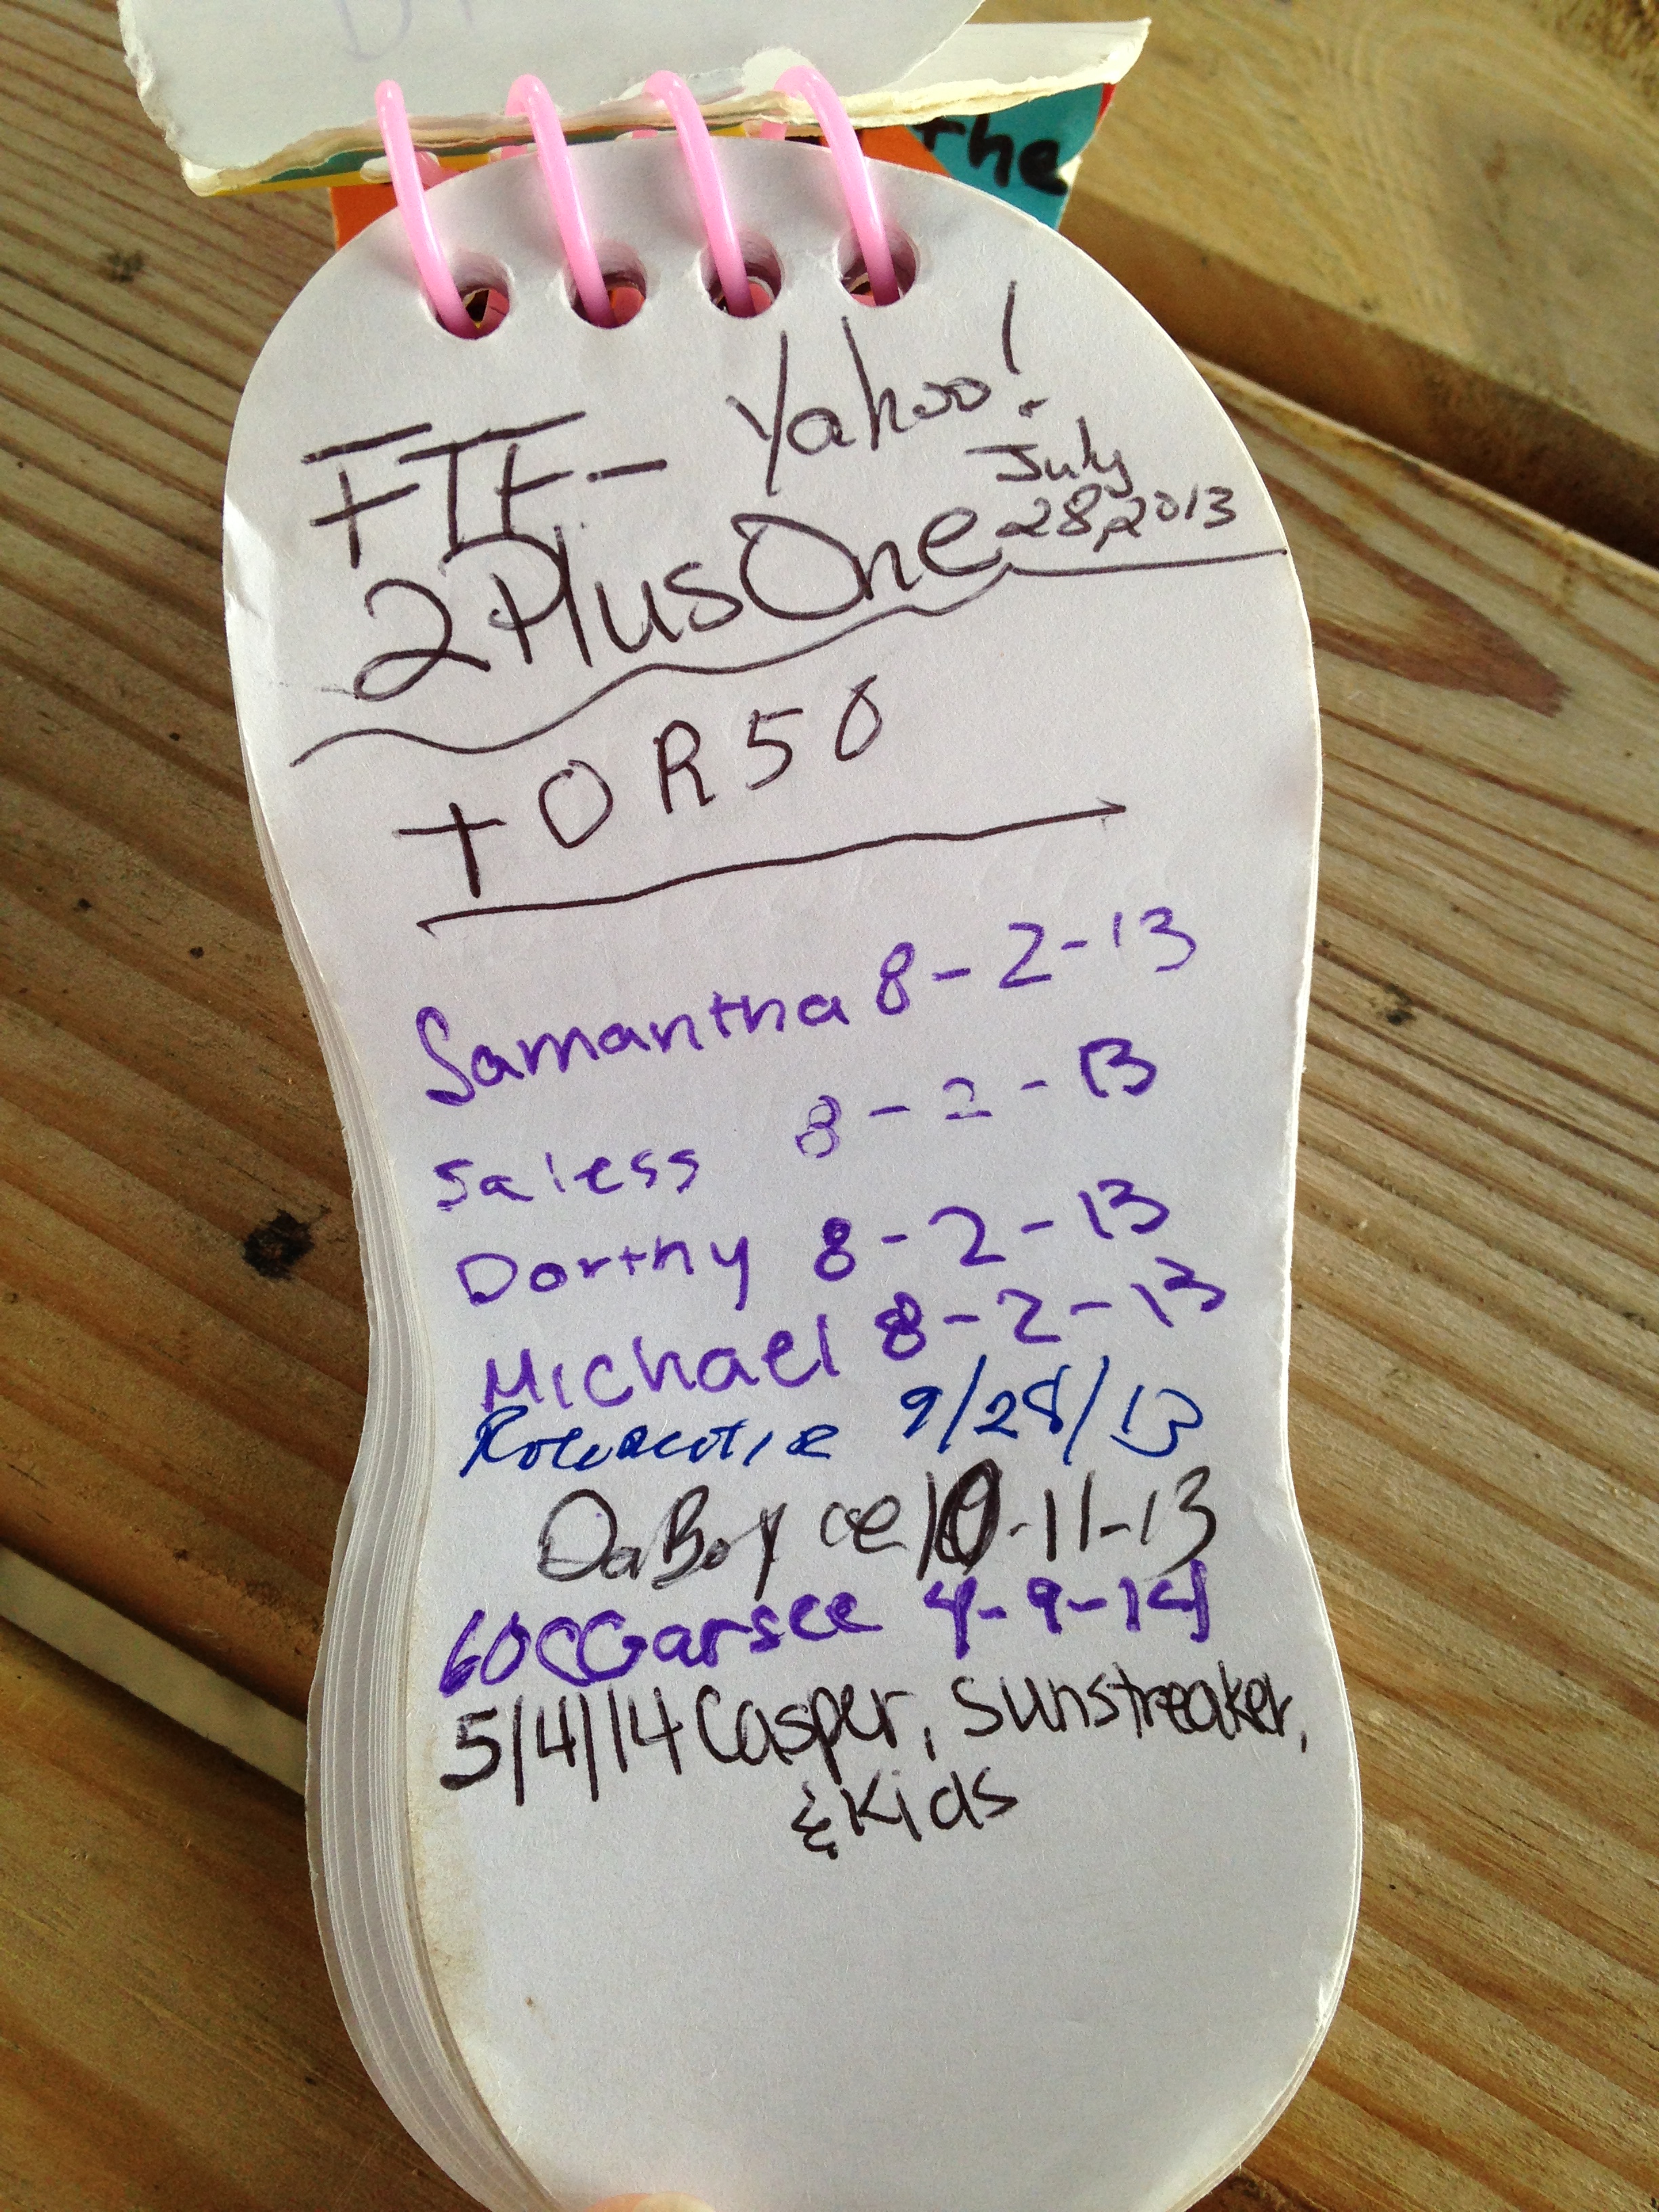 the
FTF- Yahoo!
July
2PlusOne 28, 2013
+ OR50
Samantha 8-2-13
Saless 8-2-13
Dorthy 8-2-13
Michael 8-2-13
9/28/13
DaBoyce 10-11-13
60CGarsee 4-9-14
5/4/14 Casper, Sunstreaker,
& Kids